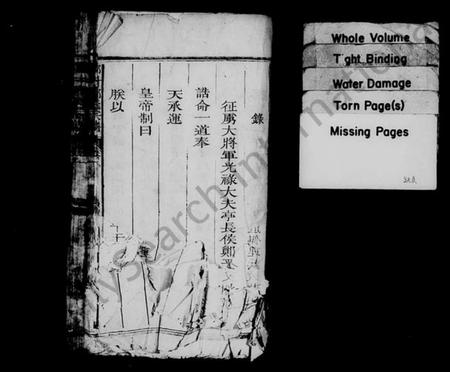 錄
征虜大將軍光祿大夫亭長侯鄭
誥命一道奉
天承運
皇帝制曰
朕以
Whole Volume
Tight Binding
Water Damage
Torn Page(s)
Missing Pages